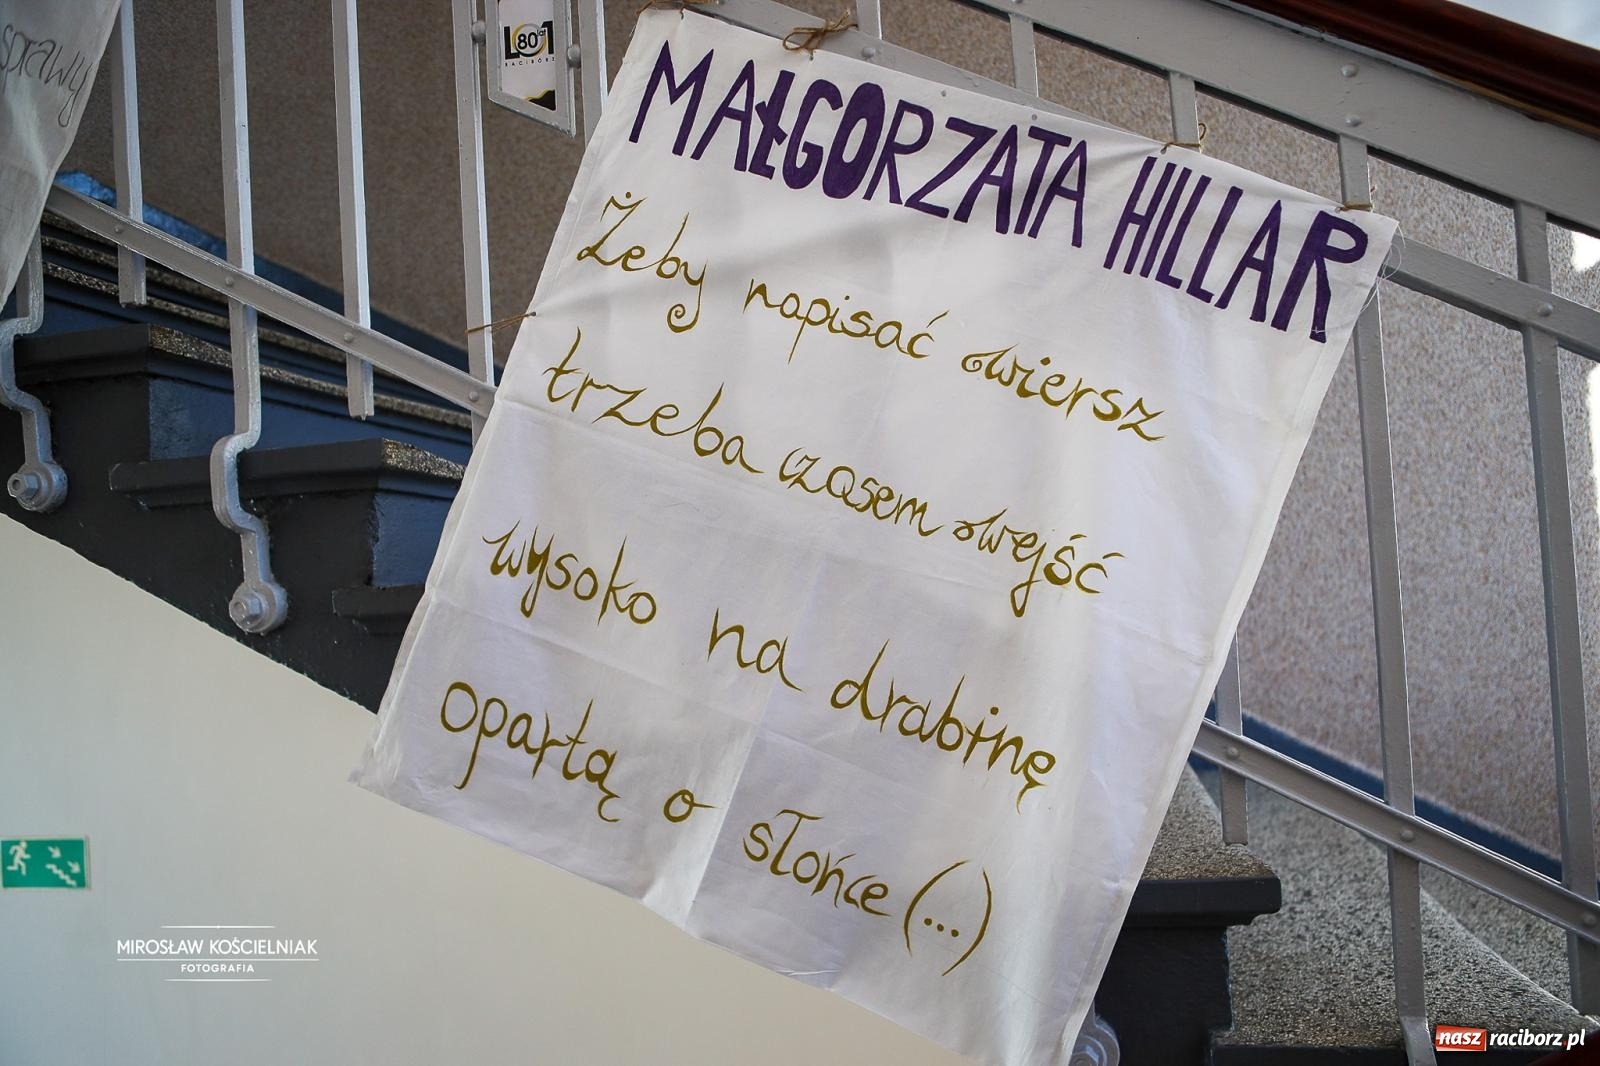 sprawy
LO1
80 lat
RACIBÓRZ
MAŁGORZATA HILLAR
Żeby napisać wiersz
trzeba czasem wejść
wysoko na drabinę
opartą o słońce (...)
MIROSŁAW KOŚCIELNIAK
FOTOGRAFIA
nasz raciborz.pl